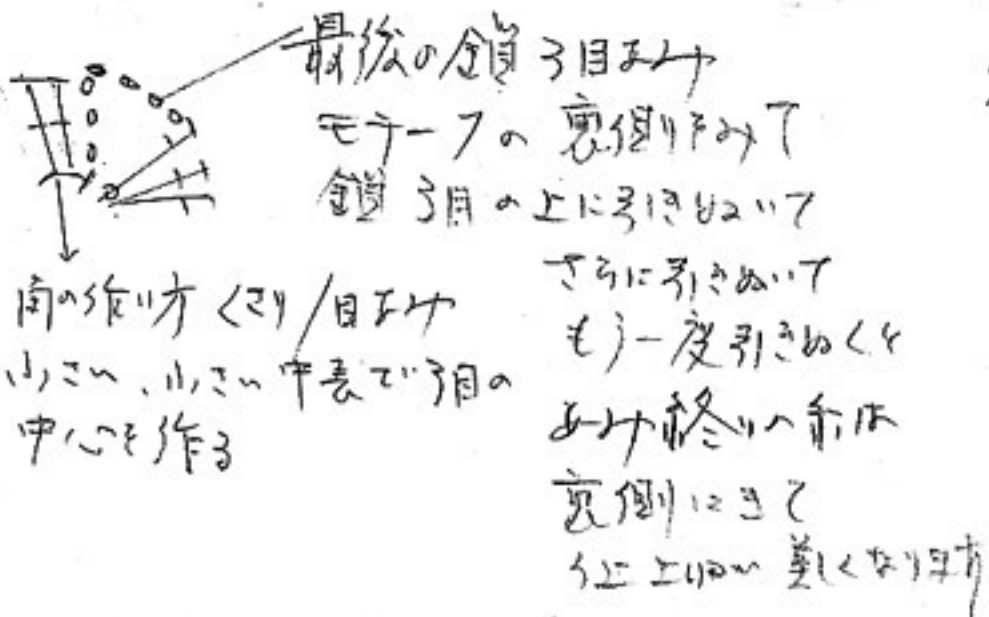 最後の鎖3目あみ
モチーフの裏側をみて
鎖3目の上に引きぬいて
さらに引きぬいて
もう一度引きぬくと
あみ終りの糸は
裏側にきて
仕上りが美しくなります
の作り方くさり1目あみ
小さい、小さい中長で3目の
中心を作る